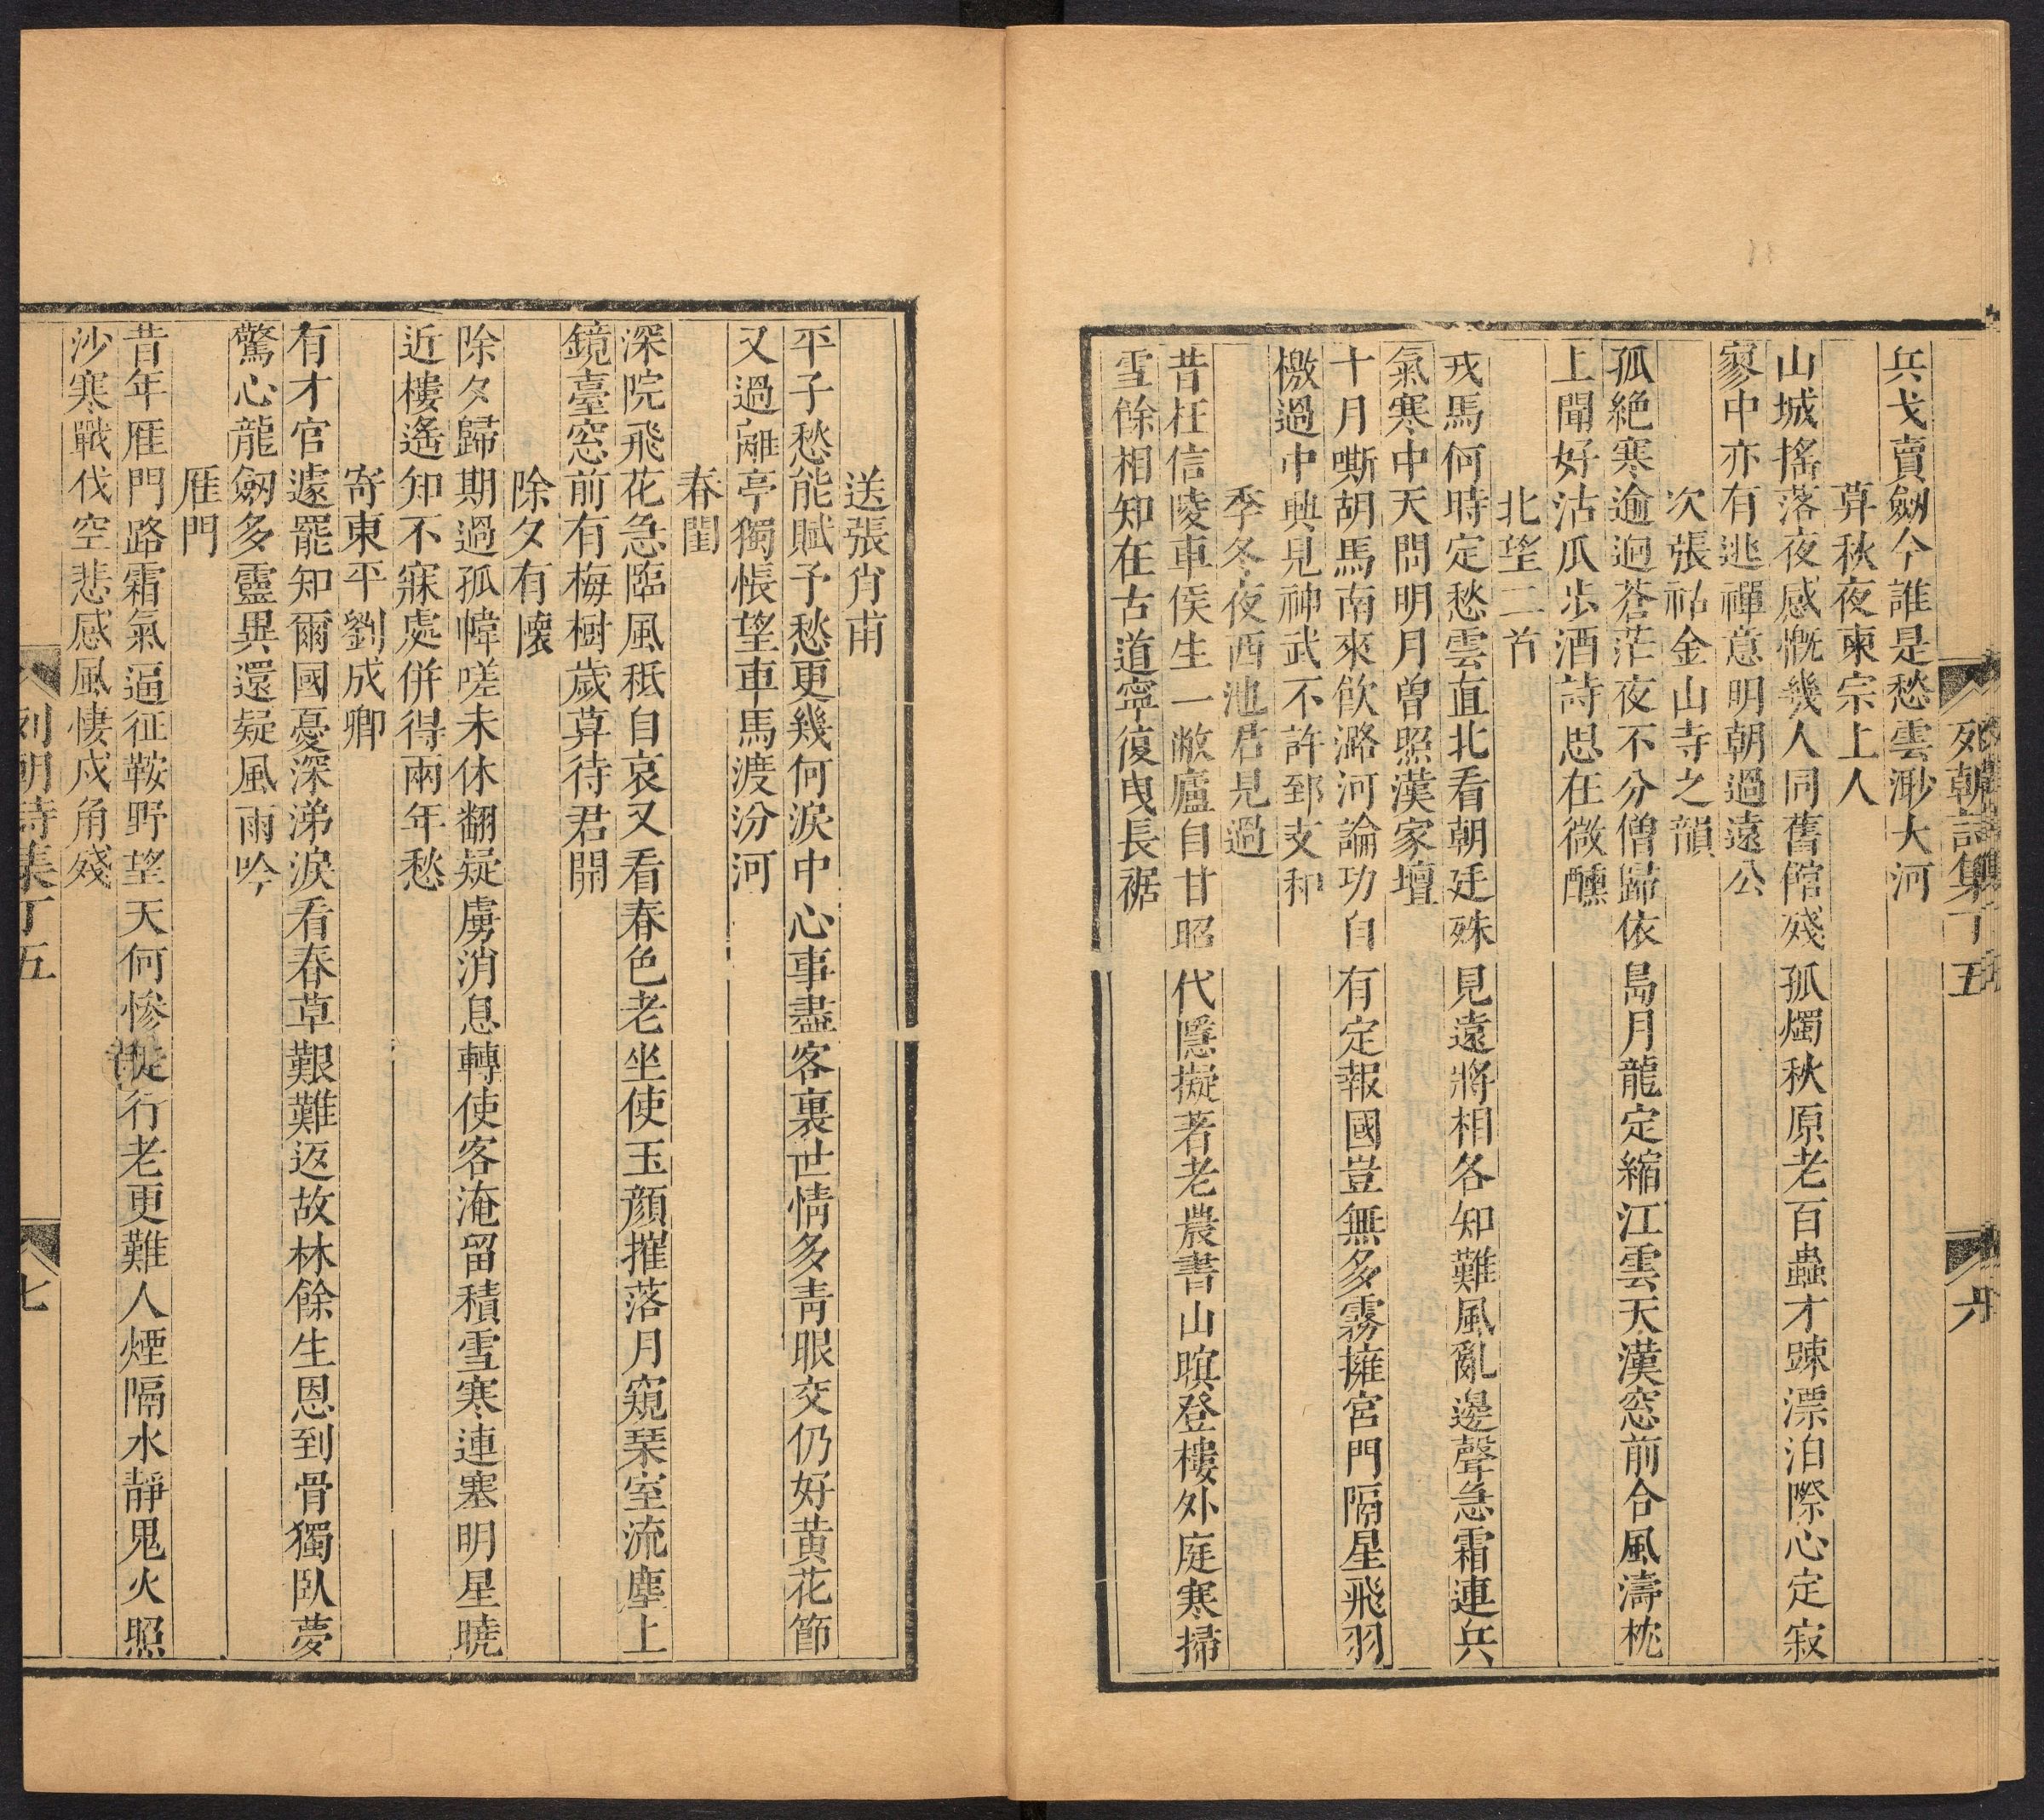 列朝詩集丁五
六
兵戈賣劒今誰是愁雲渺大河
算秋夜柬宗上人
山城搖落夜感慨幾人同舊館殘孤燭秋原老百蟲才踈漂泊際心定寂
寥中亦有逃禪意明朝過遠公
次張祜金山寺之韻
孤絶寒逾迥蒼茫夜不分僧歸依島月龍定縮江雲天漢窓前合風濤枕
上聞好沽瓜步酒詩思在微醺
北望二首
戎馬何時定愁雲直北看朝廷殊見遠將相各知難風亂邊聲急霜連兵
氣寒中天問明月曾照漢家壇
十月嘶胡馬南來飲潞河論功自有定報國豈無多霧擁宮門隔星飛羽
檄過中興見神武不許郅支和
季冬夜酉池君見過
昔枉信陵車侯生一敝廬自甘昭代隱擬著老農書山暝登樓外庭寒掃
雪餘相知在古道寧復曳長裾
送張肖甫
平子愁能賦予愁更幾何淚中心事盡客裏世情多青眼交仍好黄花節
又過離亭獨悵望車馬渡汾河
春閨
深院飛花急臨風秪自哀又看春色老坐使玉顔摧落月窺琹室流塵上
鏡臺窓前有梅樹歲算待君開
除夕有懷
除夕歸期過孤幃嗟未休翻疑虜消息轉使客淹留積雪寒連塞明星曉
近樓遙知不寐處併得兩年愁
寄東平劉成卿
有才官遽罷知爾國憂深涕淚看春草艱難返故林餘生恩到骨獨臥夢
驚心龍劒多靈異還疑風雨吟
雁門
昔年雁門路霜氣逼征鞍野望天何慘行老更難人煙隔水靜鬼火照
沙寒戰伐空悲感風悽戍角殘
列朝詩集丁五
七